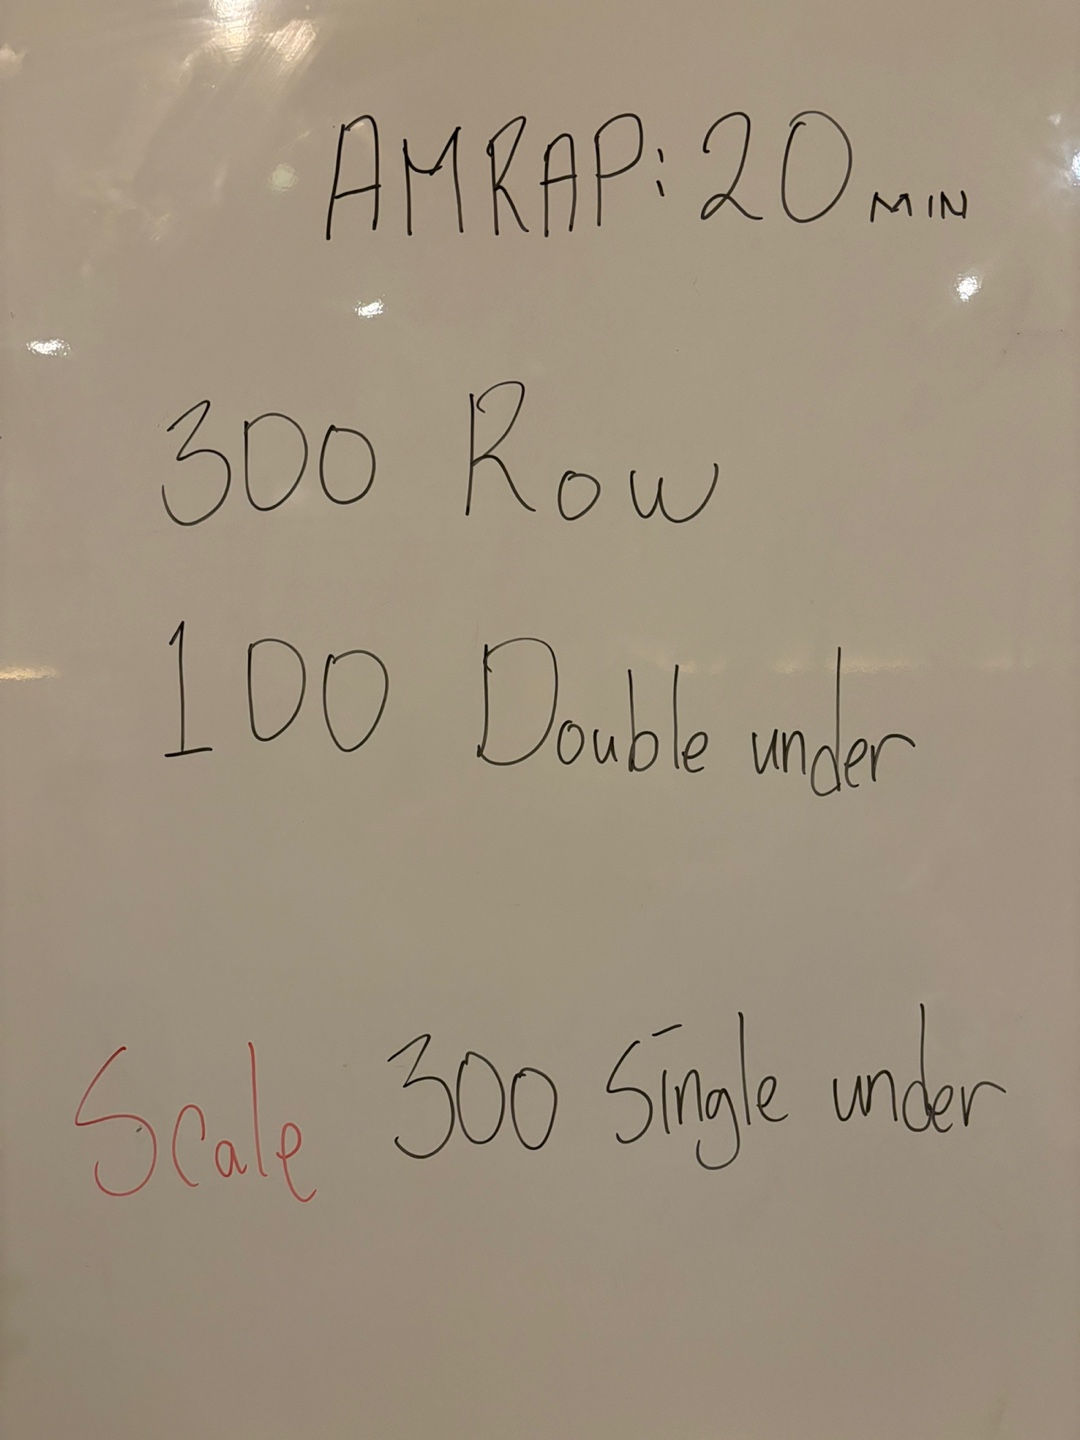 AMRAP: 20 MIN
300 Row
100 Double under
Scale 300 Single under